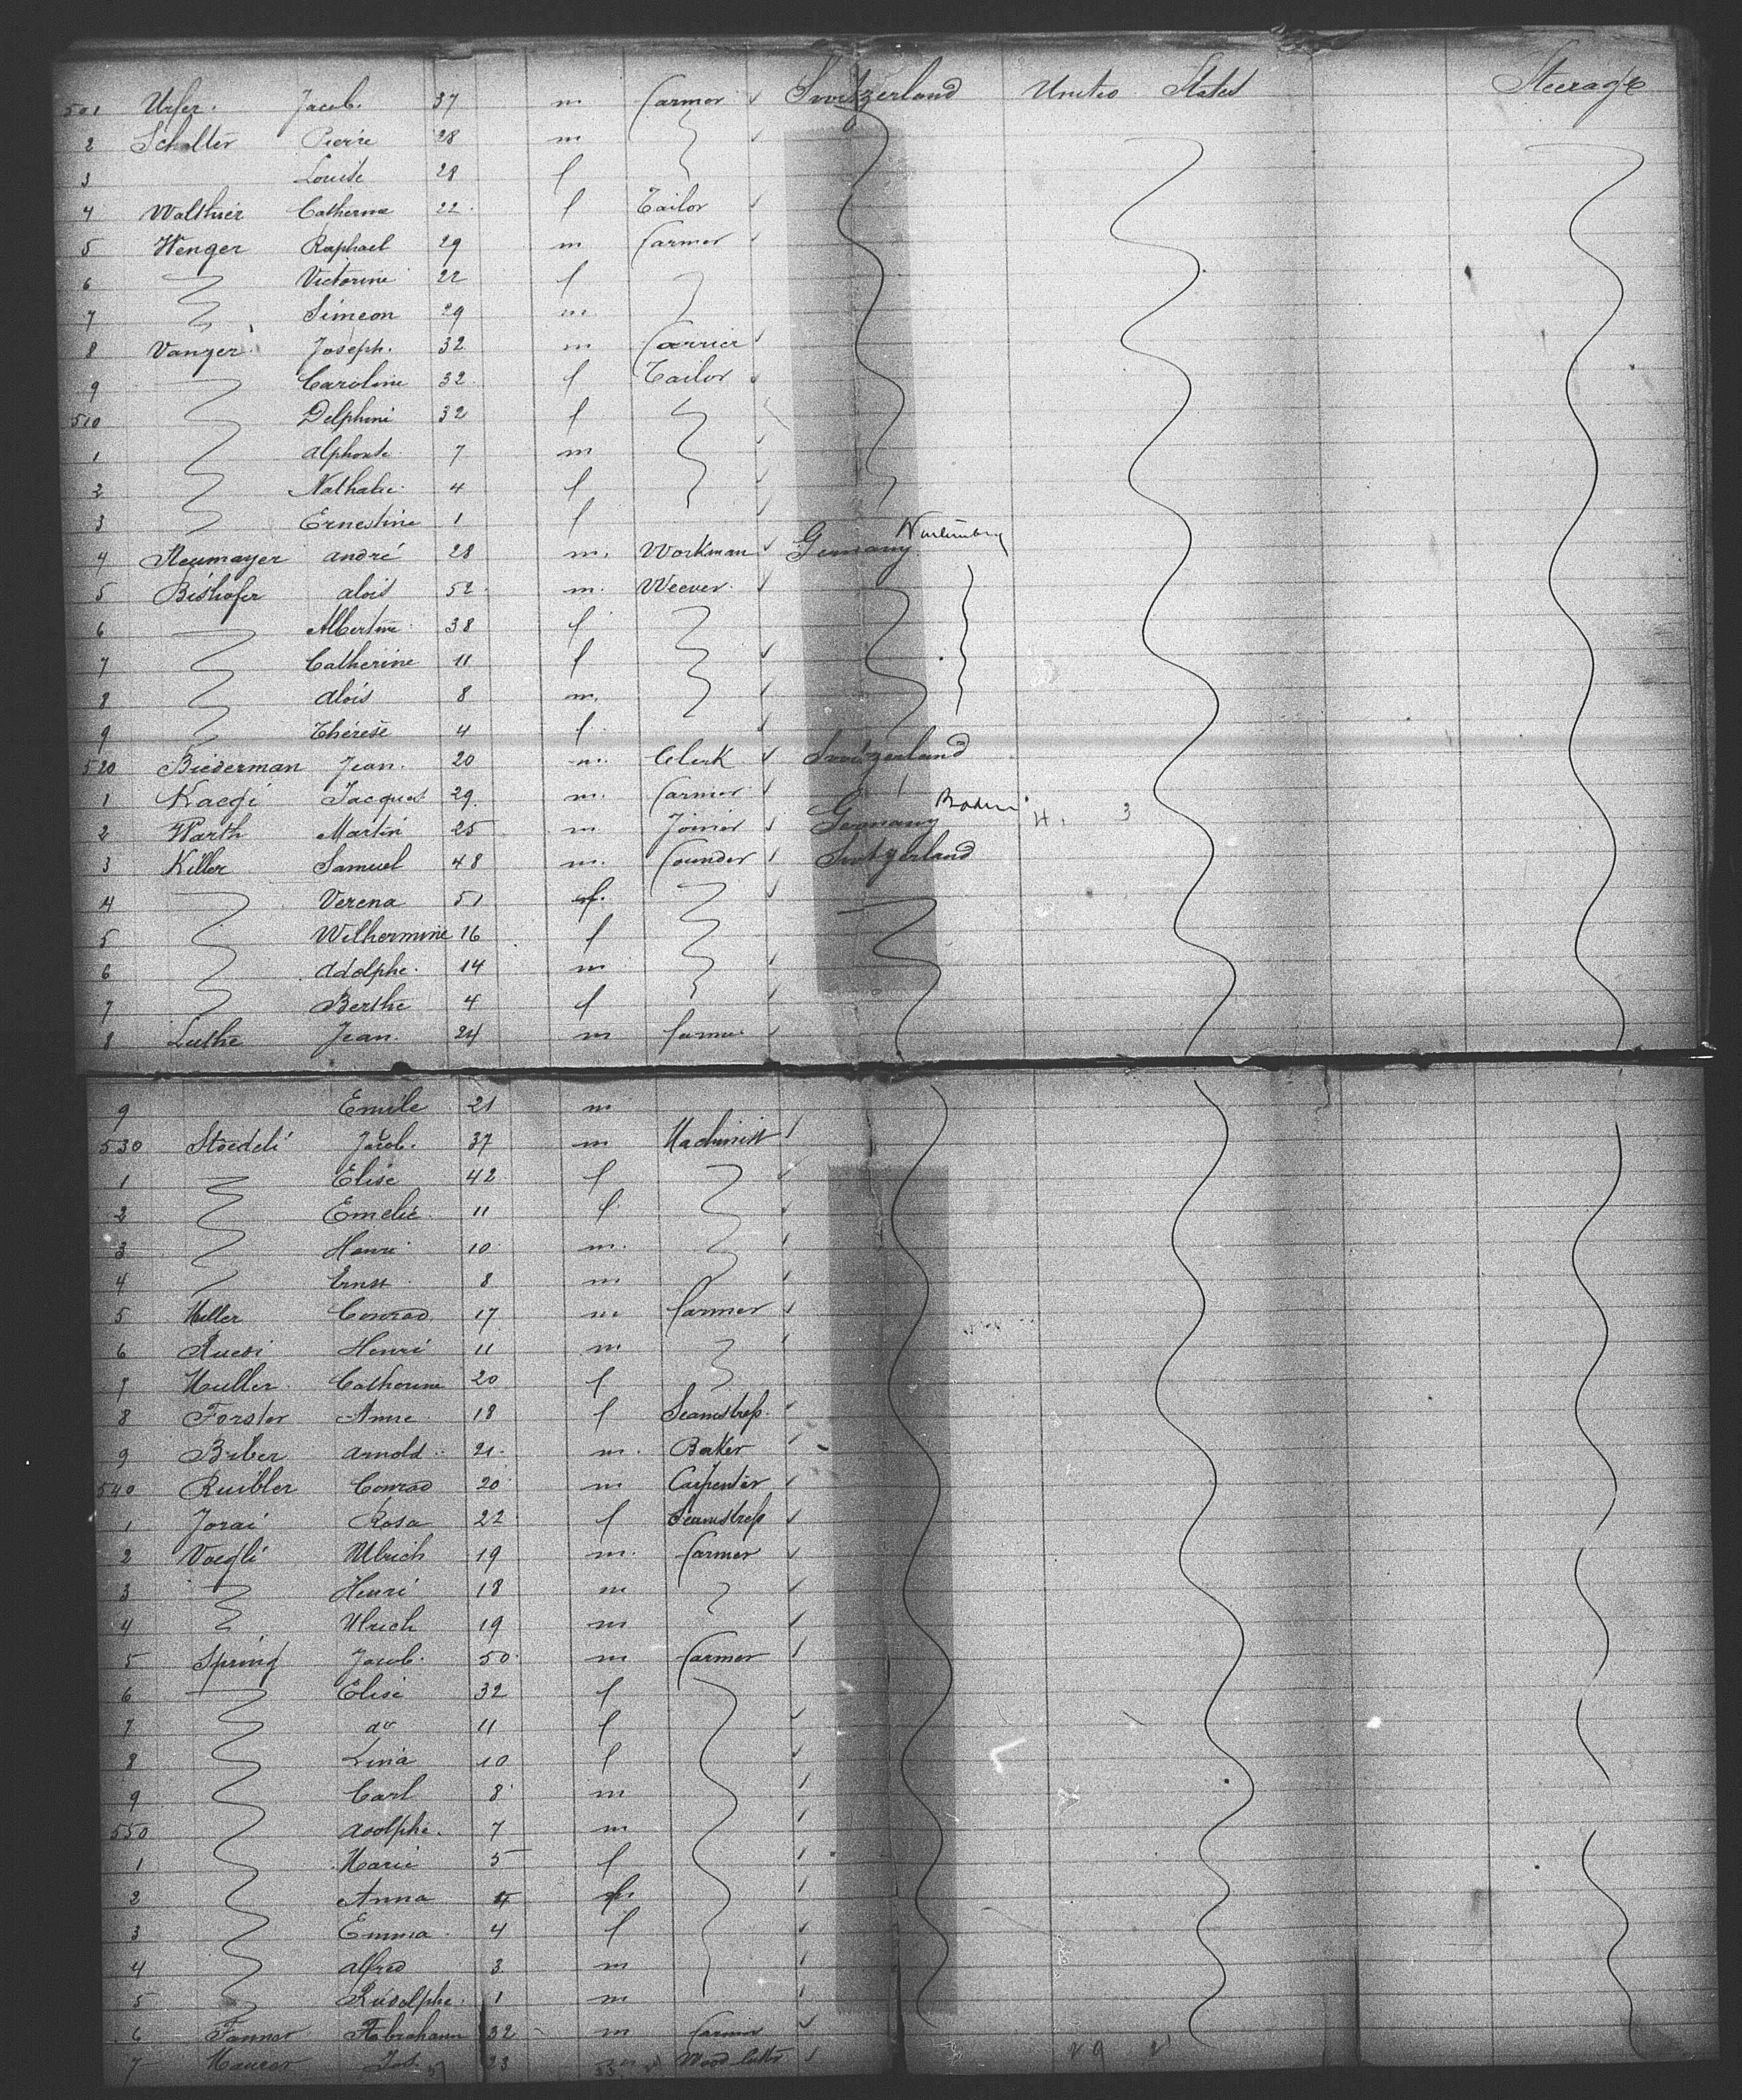 501 Urfer. Jacob. 37 m farmer Switzerland United States Steerage
2 Scholter Pierre 28 m
3 Louise 28 f
4 Walthier Catherine 22 f Tailor
5 Wenger Raphael 29 m farmer
6 Victorine 22 f
7 Simeon 29 m
8 Vanger Joseph. 32 m Carrier
9 Caroline 32 f Tailor
510 Delphine 32 f
1 Alphonse 7 m
2 Nathalie 4 f
3 Ernestine 1 f
4 Neumayer André 28 m. Workman Germany Wurtemberg
5 Bishofer Alois 52 m. Weever
6 Albertine 38 f
7 Catherine 11 f
8 Alois 8 m.
9 Thérèse 4 f
520 Biederman Jean. 20 m. Clerk Switzerland
1 Kaegi Jacques 29 m. farmer
2 Warth Martin 25 m Joiner Germany Baden H. 3
3 Killer Samuel 48 m. founder Switzerland
4 Verena 51 f.
5 Wilhermine 16 f
6 Adolphe. 14 m
7 Berthe 4 f
8 Luthe Jean. 24 m farmer
9 Emile 21 m
530 Stoedeli Jacob. 37 m Machinist
1 Elise 42 f
2 Emelie 11 f
3 Henri 10 m.
4 Ernst 8 m
5 Muller Conrad 17 m farmer
6 Ruedi Henri 11 m
7 Muller Catherine 20 f
8 Forster Anne 18 f Seamstress
9 Biber Arnold 21 m. Baker
540 Ruibler Conrad 20 m Carpenter
1 Jorai Rosa 22 f Seamstress
2 Voegli Ulrich 19 m. farmer
3 Henri 18 m
4 Ulrich 19 m
5 Spring Jacob. 50 m farmer
6 Elise 32 f
7 do 11 f
8 Lina 10 f
9 Carl 8 m
550 Adolphe. 7 m
1 Marie 5 f
2 Anna 4 f
3 Emma 4 f
4 Alfred 3 m
5 Rudolphe. 1 m
6 Tanner Abraham 32 m farmer
7 Maurer 23 Wood cutter